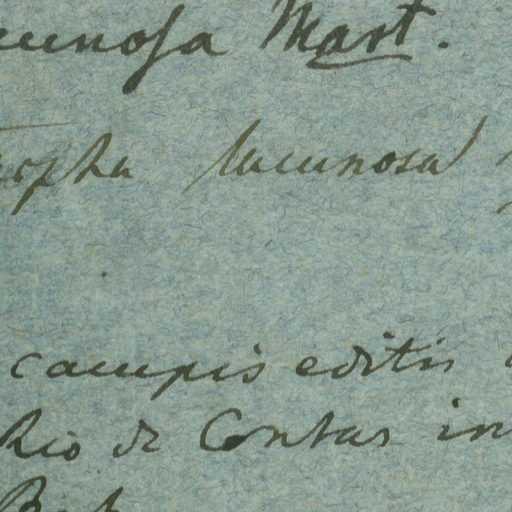 cunosa Mart.
lacunosa
campis editis
Rio de Contas in